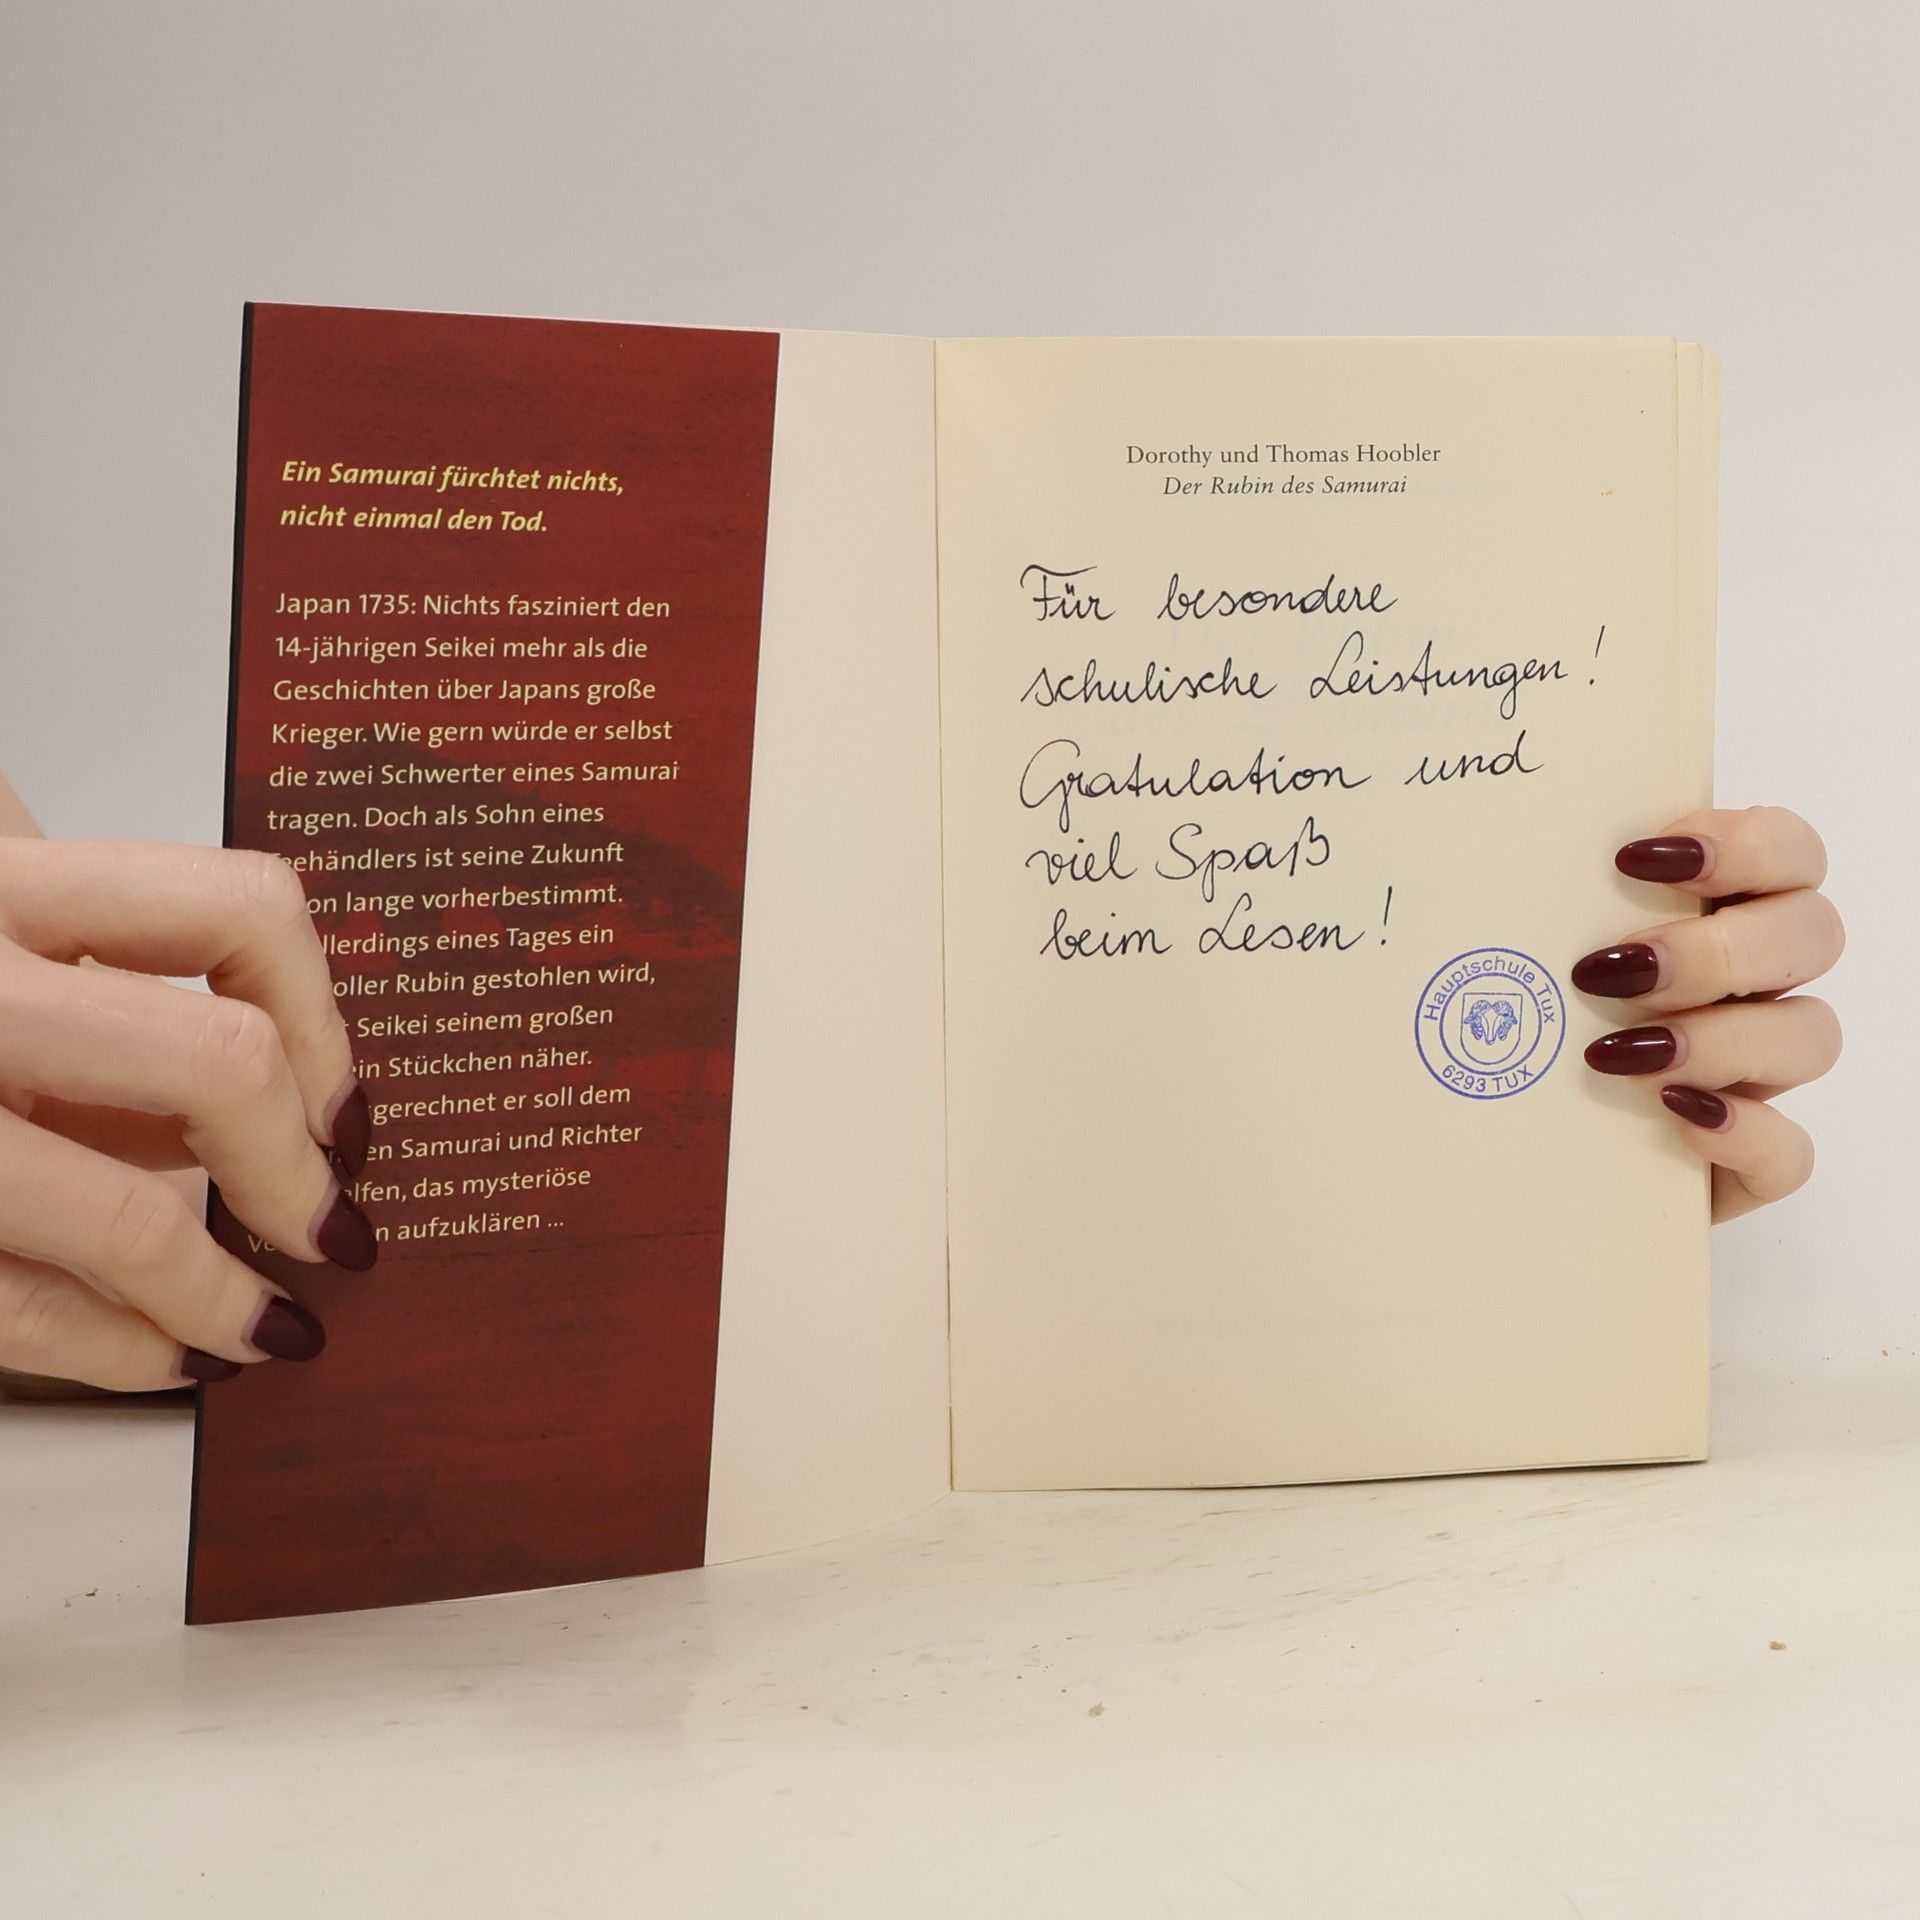 Ein Samurai fürchtet nichts,
nicht einmal den Tod.
Japan 1735: Nichts fasziniert den
14-jährigen Seikei mehr als die
Geschichten über Japans große
Krieger. Wie gern würde er selbst
die zwei Schwerter eines Samurai
tragen. Doch als Sohn eines
Teehändlers ist seine Zukunft
lange vorherbestimmt.
eines Tages ein
Rubin gestohlen wird,
Seikei seinem großen
Stückchen näher.
er soll dem
Samurai und Richter
das mysteriöse
aufzuklären ...
Dorothy und Thomas Hoobler
Der Rubin des Samurai
Für besondere
schulische Leistungen!
Gratulation und
viel Spaß
beim Lesen!
Hauptschule Tux
6293 TUX